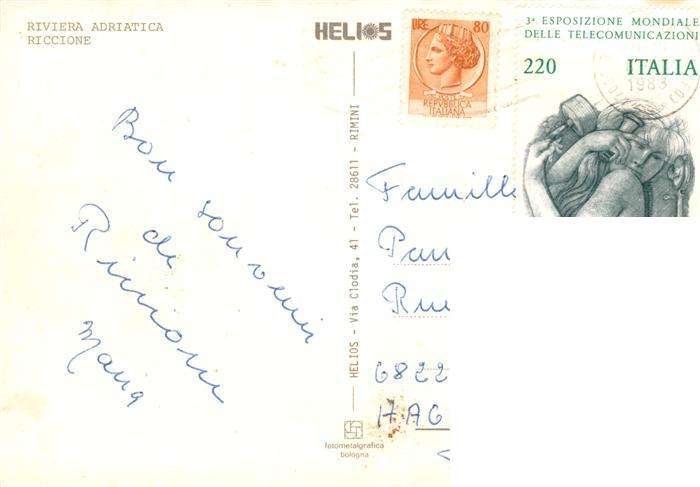 RIVIERA ADRIATICA
RICCIONE
HELIOS
LIRE 80
REPVBBLICA
ITALIANA
3ª ESPOSIZIONE MONDIALE
DELLE TELECOMUNICAZIONI
220 ITALIA
1983
Bon souvenir
di
Riccione
Maria
HELIOS - Via Clodia, 41 - Tel. 28611 - RIMINI
Famille
Pan
Rue
6822
HAG
fotometalgrafica
bologna